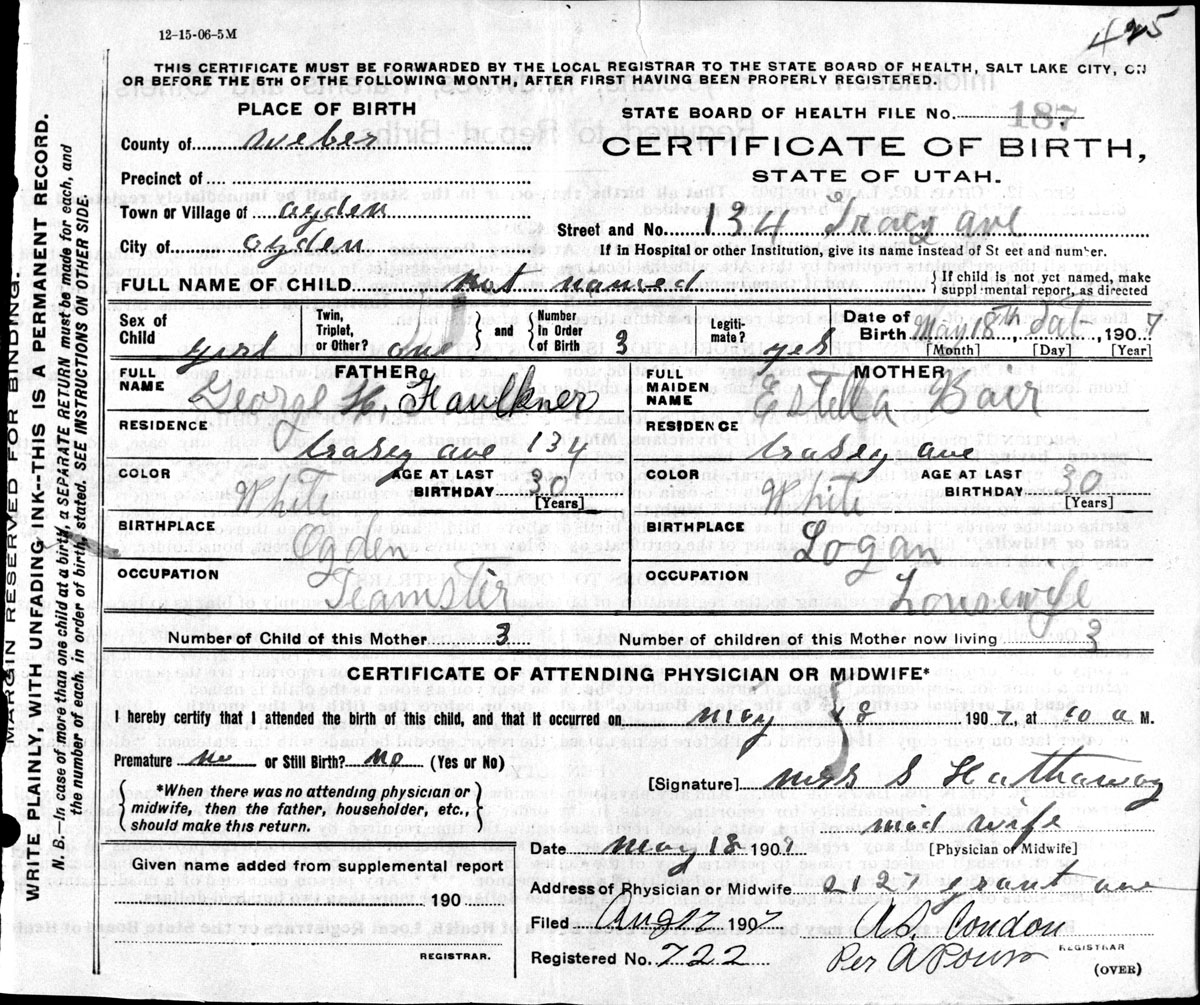 425
12-15-06-5M
THIS CERTIFICATE MUST BE FORWARDED BY THE LOCAL REGISTRAR TO THE STATE BOARD OF HEALTH, SALT LAKE CITY, ON
OR BEFORE THE 5TH OF THE FOLLOWING MONTH, AFTER FIRST HAVING BEEN PROPERLY REGISTERED.
MARGIN RESERVED FOR BINDING.
WRITE PLAINLY, WITH UNFADING INK--THIS IS A PERMANENT RECORD.
N. B.--In case of more than one child at a birth, a SEPARATE RETURN must be made for each, and
the number of each, in order of birth, stated. SEE INSTRUCTIONS ON OTHER SIDE.
PLACE OF BIRTH
County of Weber
Precinct of
Town or Village of Ogden
City of Ogden
STATE BOARD OF HEALTH FILE No. 187
CERTIFICATE OF BIRTH,
STATE OF UTAH.
Street and No. 134 Tracy ave
If in Hospital or other Institution, give its name instead of St eet and number.
FULL NAME OF CHILD not named { If child is not yet named, make
suppl mental report, as directed
Sex of Child girl Twin, Triplet, or Other? one and Number in Order of Birth 3 Legiti- mate? yes Date of Birth May 18th, Sat, 1907
[Month] [Day] [Year]
FATHER
FULL NAME George H. Faulkner
RESIDENCE
Trasey ave 134
COLOR White AGE AT LAST BIRTHDAY 30 [Years]
BIRTHPLACE
Ogden
OCCUPATION
Teamster
MOTHER
FULL MAIDEN NAME Estella Barr
RESIDENCE
trasey ave
COLOR White AGE AT LAST BIRTHDAY 30 [Years]
BIRTHPLACE
Logan
OCCUPATION
Housewife
Number of Child of this Mother 3 Number of children of this Mother now living 3
CERTIFICATE OF ATTENDING PHYSICIAN OR MIDWIFE*
I hereby certify that I attended the birth of this child, and that it occurred on may 18 1907, at 10 a M.
Premature no or Still Birth? no (Yes or No)
*When there was no attending physician or
midwife, then the father, householder, etc.,
should make this return.
[Signature] mrs S Hathaway
mid wife
[Physician or Midwife]
Date may 18 1907
Given name added from supplemental report
190
REGISTRAR.
Address of Physician or Midwife 2127 grant ave
Filed Aug 12 1907 A S. Condon
REGISTRAR
Registered No. 722 Per
(OVER)